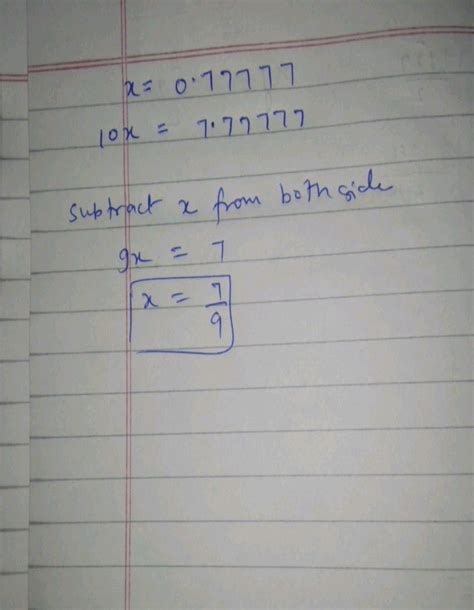 x = 0.77777
10x = 7.77777
subtract x from both side
9x = 7
x = 7/9